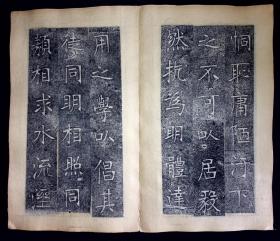 恫聡庸陋污下
之不可㠯居毅
然抗為明體達
用之學㠯倡其
徒同明相照同
類相求水流溼